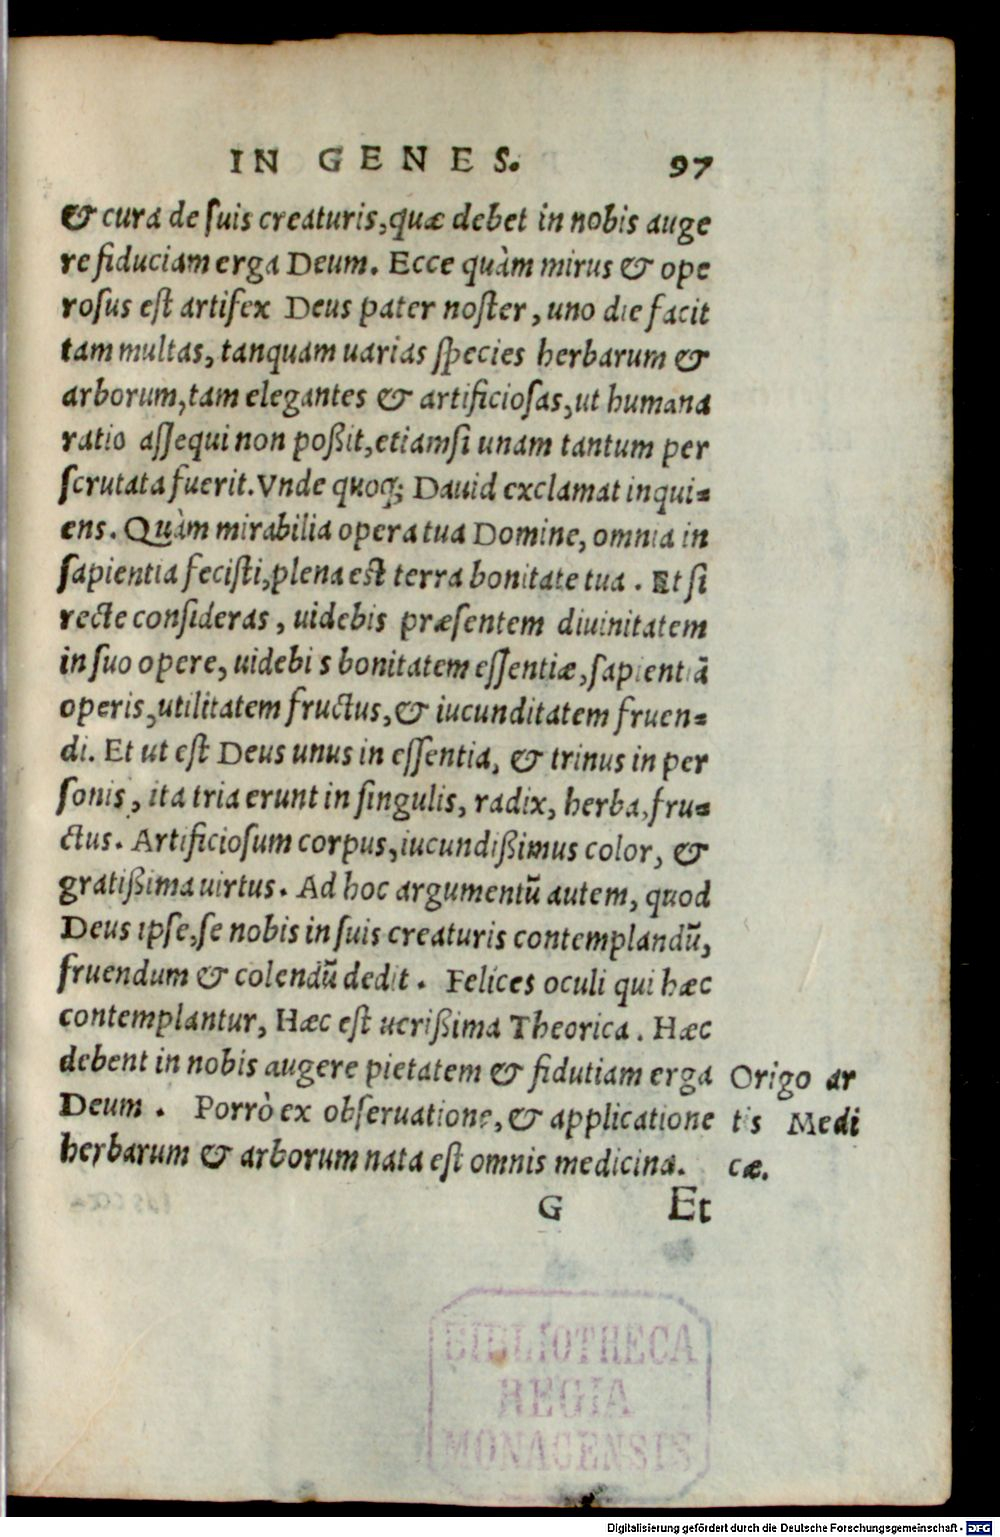 IN GENES. 97
& cura de ſuis creaturis, quæ debet in nobis auge
re fiduciam erga Deum. Ecce quàm mirus & ope
roſus eſt artifex Deus pater noſter, uno die facit
tam multas, tanquam uarias ſpecies herbarum &
arborum, tam elegantes & artificioſas, ut humana
ratio aſſequi non poßit, etiamſi unam tantum per
ſcrutata fuerit. Vnde quoq; Dauid exclamat inqui-
ens. Quàm mirabilia opera tua Domine, omnia in
ſapientia feciſti, plena eſt terra bonitate tua. Et ſi
recte conſideras, uidebis præſentem diuinitatem
in ſuo opere, uidebi s bonitatem eſſentiæ, ſapientiã
operis, utilitatem fructus, & iucunditatem fruen-
di. Et ut eſt Deus unus in eſſentia, & trinus in per
ſonis, ita tria erunt in ſingulis, radix, herba, fru-
ctus. Artificioſum corpus, iucundißimus color, &
gratißima uirtus. Ad hoc argumentũ autem, quod
Deus ipſe, ſe nobis in ſuis creaturis contemplandũ,
fruendum & colendũ dedit. Felices oculi qui hæc
contemplantur, Hæc eſt uerißima Theorica. Hæc
debent in nobis augere pietatem & fidutiam erga
Deum. Porrò ex obſeruatione, & applicatione
herbarum & arborum nata eſt omnis medicina.
Origo ar
tis Medi
cæ.
G Et
BIBLIOTHECA
REGIA
MONACENSIS
Digitalisierung gefördert durch die Deutsche Forschungsgemeinschaft - DFG